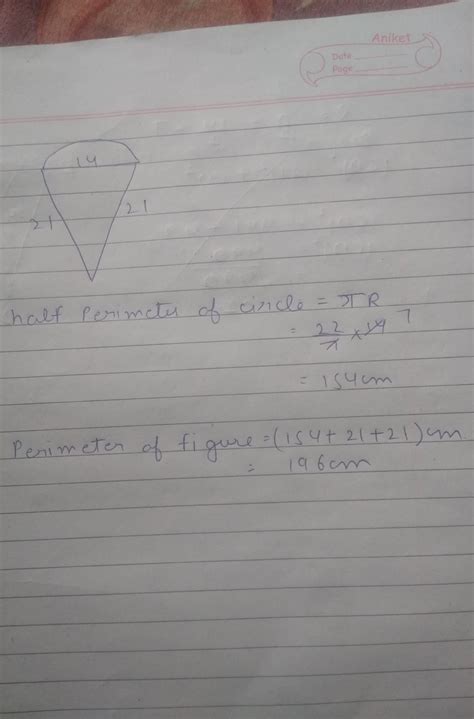 Aniket
Date
Page
14
21 21
half Perimeter of circle = πR
= 22/7 × 14 7
= 154cm
Perimeter of figure = (154 + 21 + 21) cm
= 196cm